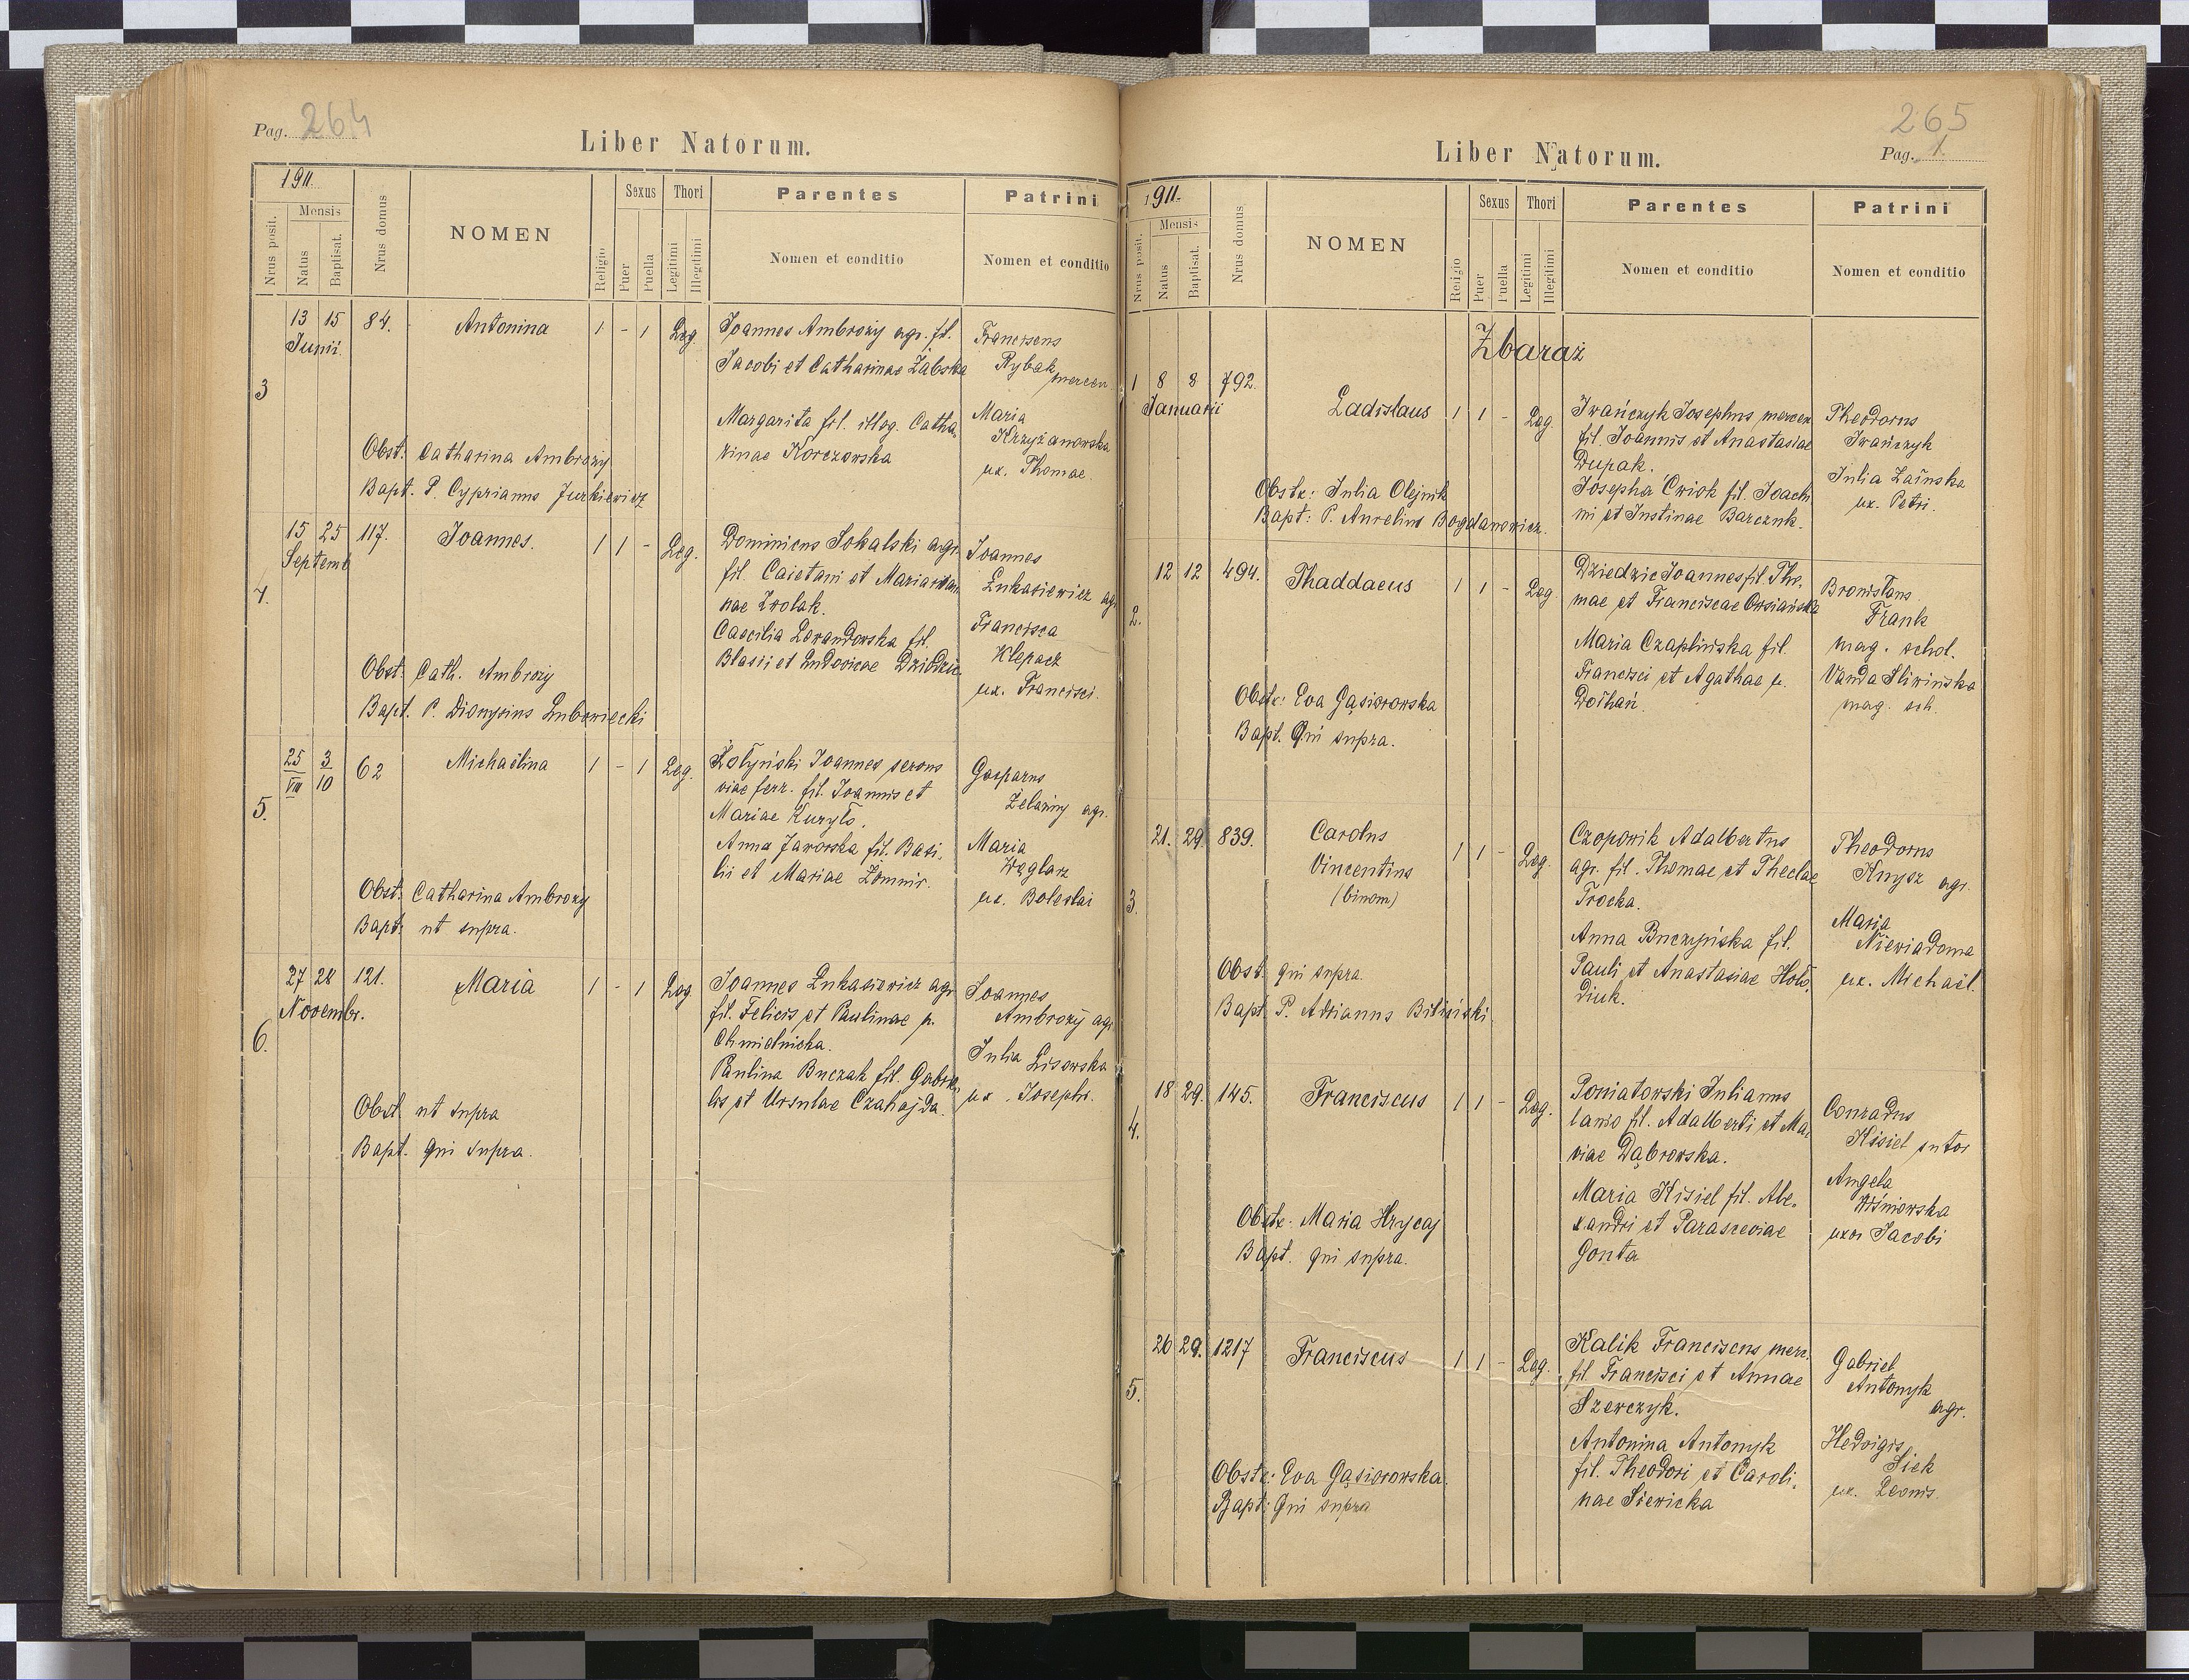 Pag. 264
Liber Natorum.
1911.
Nrus posit.
Mensis
Natus
Baptisat.
Nrus domus
NOMEN
Religio
Sexus
Puer
Puella
Thori
Legitimi
Illegitimi
Parentes
Nomen et conditio
Patrini
Nomen et conditio
3
13 15
Junii
84.
Antonina
1 - 1 Leg.
Joannes Ambroży agr. fil.
Jacobi et Catharinae Żabska
Margarita fil. illeg. Catha-
rinae Korczowska
Franciscus
Rybak
mercen.
Maria
Krzyżanowska
ux. Thomae
Obst: Catharina Ambroży
Bapt. P. Cyprianus Jurkiewicz
4.
15 25
Septemb
117.
Joannes.
1 1 - Leg.
Dominicus Sokalski agr.
fil. Caietani et Marian
nae Wolak.
Caecilia Lewandowska fil.
Blasii et Ludovicae
Joannes
Łukasiewicz agr
Francisca
Klepacz
ux. Francisci
Obst: Cath. Ambroży
Bapt. P. Dionysius Lubowiecki
5.
25 3
VIII 10
62
Michaëlina
1 - 1 Leg.
Żołyński Joannes servus
viae ferr. fil. Joannis et
Mariae Kuryło.
Anna Jaworska fil. Basi-
lii et Mariae Żomnir.
Gasparus
Żelazny agr.
Maria
Węglarz
ux. Boleslai
Obst: Catharina Ambroży
Bapt: ut supra.
6.
27 28
Novembr.
121.
Maria
1 - 1 Leg.
Joannes Łukasiewicz agr
fil. Felicis et Paulinae p.
Chmielnicka.
Paulina Buczak fil. Gabrie-
lis et Ursulae Czahajda.
Joannes
Ambroży agr
Julia Lisowska
ux. Josephi.
Obst. ut supra
Bapt. qui supra.
265
Pag. 1.
Liber Natorum.
1911.
Nrus posit.
Mensis
Natus
Baptisat.
Nrus domus
NOMEN
Religio
Sexus
Puer
Puella
Thori
Legitimi
Illegitimi
Parentes
Nomen et conditio
Patrini
Nomen et conditio
Zbaraż
1 8 8
Januarii
792.
Ladislaus
1 1 - Leg.
Iwańczyk Josephus mercen
fil. Joannis et Anastasiae
Dupak.
Josepha Ćwiok fil. Joach
mi et Justinae Barczuk.
Theodorus
Iwańczyk
Julia Zaińska
ux. Petri.
Obstx: Julia Olejnik
Bapt: P. Aurelius Bogdanowicz.
2.
12 12 494.
Thaddaeus
1 1 - Leg.
Dziedzic Joannes fil. Tho-
mae et Franciscae Owsiańska
Maria Czaplińska fil.
Francisci et Agathae p.
Dołhań.
Bronislaus
Frank
mag. schol.
Vanda Śliwińska
mag. sch.
Obstx: Eva Gąsiorowska
Bapt. Qui supra.
3.
21. 29. 839.
Carolus
Vincentius
(binom)
1 1 - Leg.
Czopowik Adalbertus
agr. fil. Thomae et Theclae
Trocka.
Anna Buczyńska fil.
Pauli et Anastasiae Hoło-
diuk.
Theodorus
Knysz agr.
Maria
Niewiadoma
ux. Michaël.
Obst. qui supra.
Bapt. P. Adrianus Biliński
4.
18 29. 145.
Franciscus
1 1 - Leg.
Poniatowski Julianus
lanio fil. Adalberti et Ma-
riae Dąbrowska.
Maria Kisiel fil. Ale-
xandri et Parasceviae
Gonta
Conradus
Kisiel sutor
Angela
Wiśniowska
uxor Jacobi
Obstx: Maria Hrycaj
Bapt. qui supra.
5.
26 29. 1217
Franciscus
1 1 - Leg.
Kalik Franciscus merc.
fil. Francisci et Annae
Szewczyk.
Antonina Antonyk
fil. Theodori et Caroli-
nae Siewicka
Gabriel
Antonyk
agr.
Hedvigis
Siek
ux. Leonis
Obstx: Eva Gąsiorowska.
Bapt: Qui supra